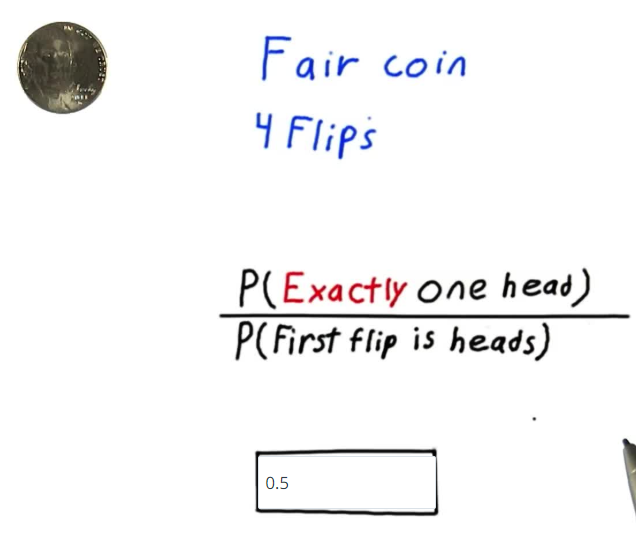 Fair coin
4 Flips
P(Exactly one head)
P(First flip is heads)
0.5